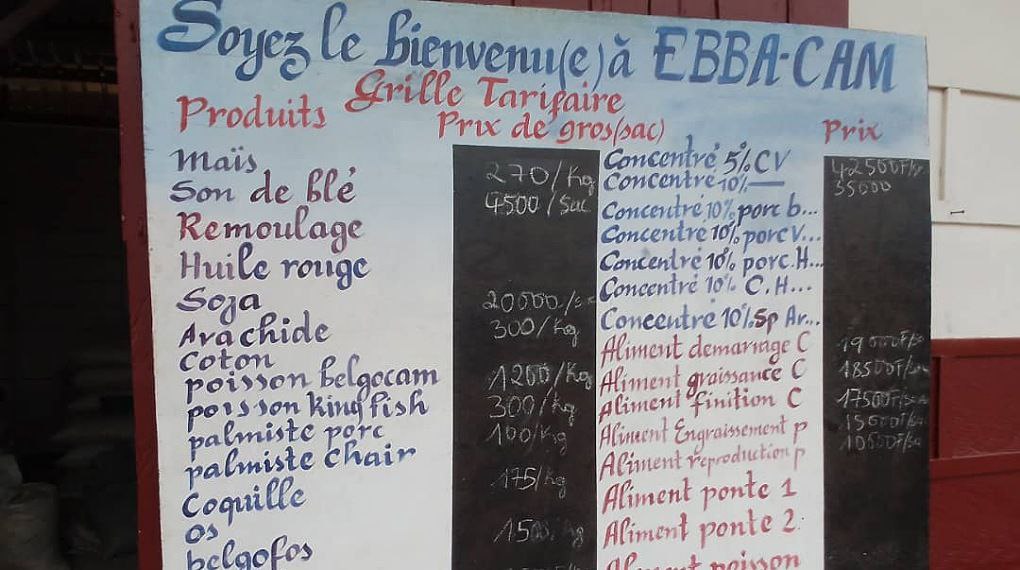 Soyez le bienvenu(e) à EBBA-CAM
Grille Tarifaire
Produits Prix de gros(sac) Prix
Maïs 270/Kg
Son de blé 4500/Sac
Remoulage
Huile rouge
Soja 20000/
Arachide 300/Kg
Coton
poisson belgocam 1200/Kg
poisson King fish 300/Kg
palmiste porc 100/Kg
palmiste chair 175/Kg
Coquille
os
belgofos
Concentré 5% CV 42500F
Concentré 10% — 35000
Concentré 10% porc b...
Concentré 10% porc V...
Concentré 10% porc.H...
Concentré 10% C.H...
Concentré 10% Sp Ar...
Aliment demarrage C
Aliment graissance C
Aliment finition C
Aliment Engraissement p
Aliment reproduction p
Aliment ponte 1
Aliment ponte 2.
Aliment poisson